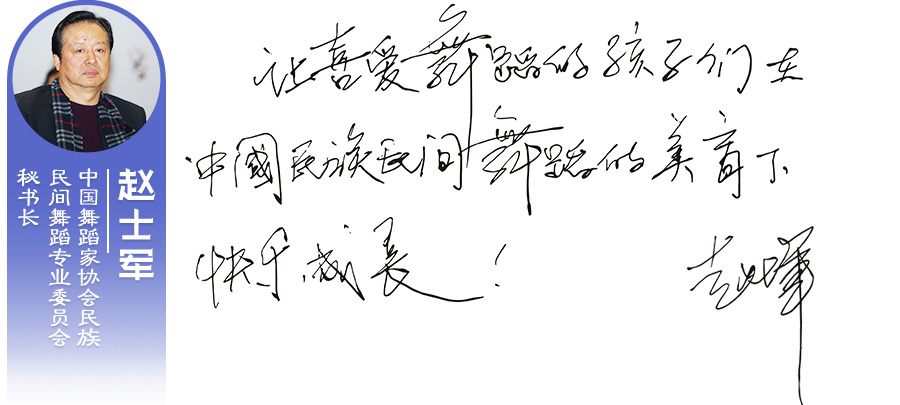 赵士军
中国舞蹈家协会民族
民间舞蹈专业委员会
秘书长
让喜爱舞蹈的孩子们在
中國民族民间舞蹈的美育下
快乐成長！
赵士军